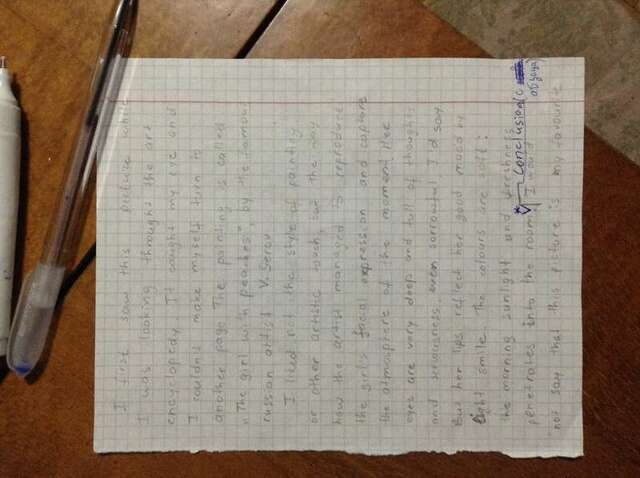 I first saw this picture while
I was looking throught the art
encyclopedy. It caught my eye and
I couldn't make myself turn to
another page. The painting is called
„The girl with peaches", by the famous
russian artist V. Serov
I liked not the style of painting
or other artistic touch, but the way
how the artist managed to reproduce
the girl's facial expression and capture
the atmosphere of the moment. Her
eyes are very deep and full of thoughts
and seriousness, even sorrowful I'd say
But her lips reflect her good mood by
light smile. The colours are soft:
the morning sunlight and freshness
penetrates into the room. I would
Conclusion (с
абзаца)
not say that this picture is my favourite